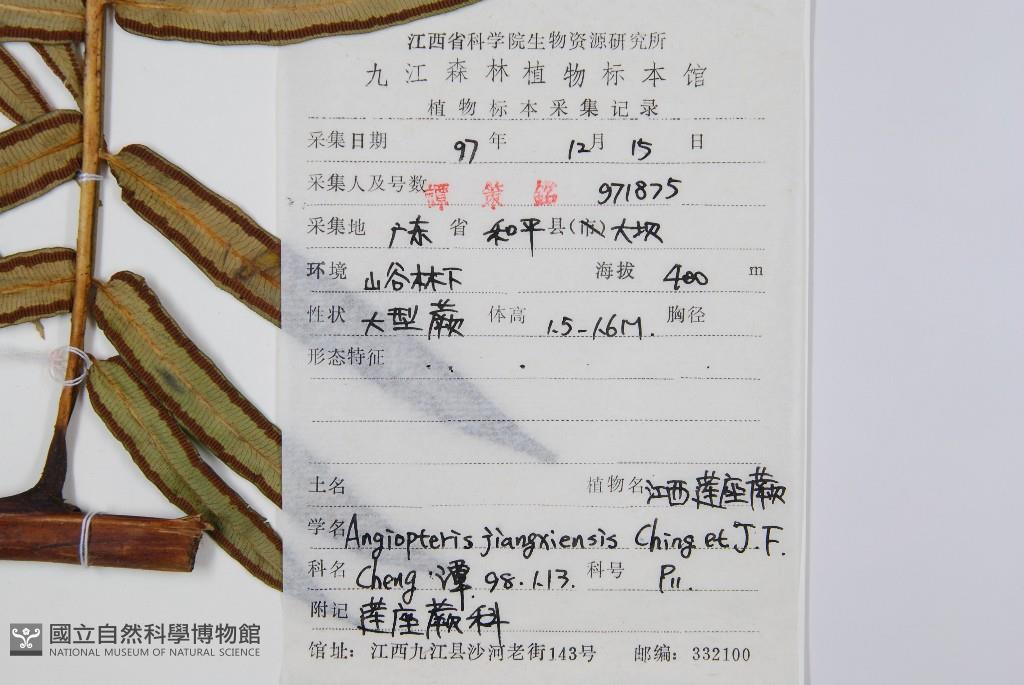 江西省科学院生物资源研究所
九江森林植物标本馆
植物标本采集记录
采集日期 97 年 12月 15 日
采集人及号数 譚策銘 971875
采集地 广东 省 和平 县(市) 大坝
环境 山谷林下 海拔 400 m
性状 大型蕨 体高 1.5-1.6M. 胸径
形态特征
土名 植物名 江西莲座蕨
学名 Angiopteris jiangxiensis Ching et J.F.
科名 Cheng 谭 98.1.13. 科号 P11.
附记 莲座蕨科
馆址：江西九江县沙河老街143号 邮编：332100
國立自然科學博物館
NATIONAL MUSEUM OF NATURAL SCIENCE